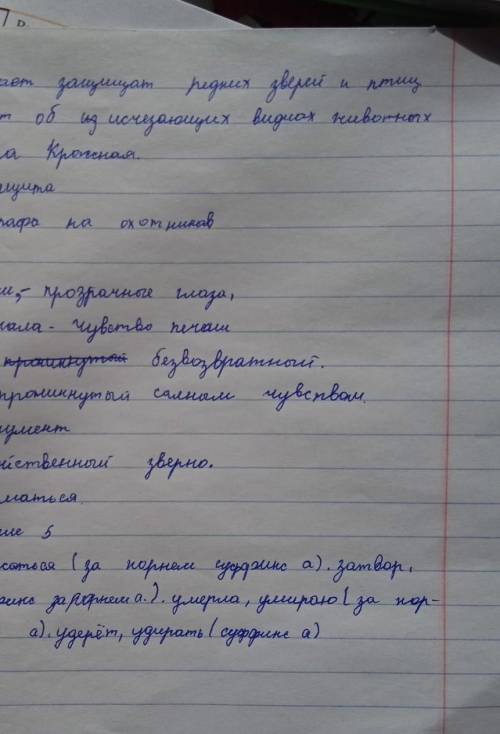 ают защищат редних зверей и птиц
т об изисчезающих видиах животных
га Кросная.
щита
рафа на охотников
прозрачные глаза,
чала - чувство печали
проникнутый безвозвратный.
проникнутый самным чувством.
умент
йственный зверно.
маться.
сле 5
саться (за корнем суффикс а). затвор,
фикс за корнем а.). умерла, умираю (за кор-
а). удерёт, удирать (суффикс а)